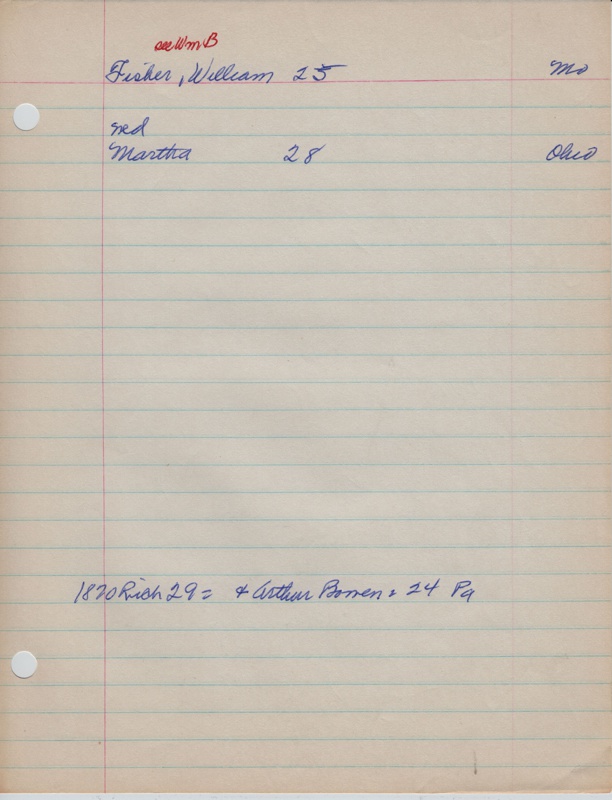 see Wm B
Fisher, William 25 Mo
md
Martha 28 Ohio
1870 Rich 29 = & Arthur Bowen = 24 Pa